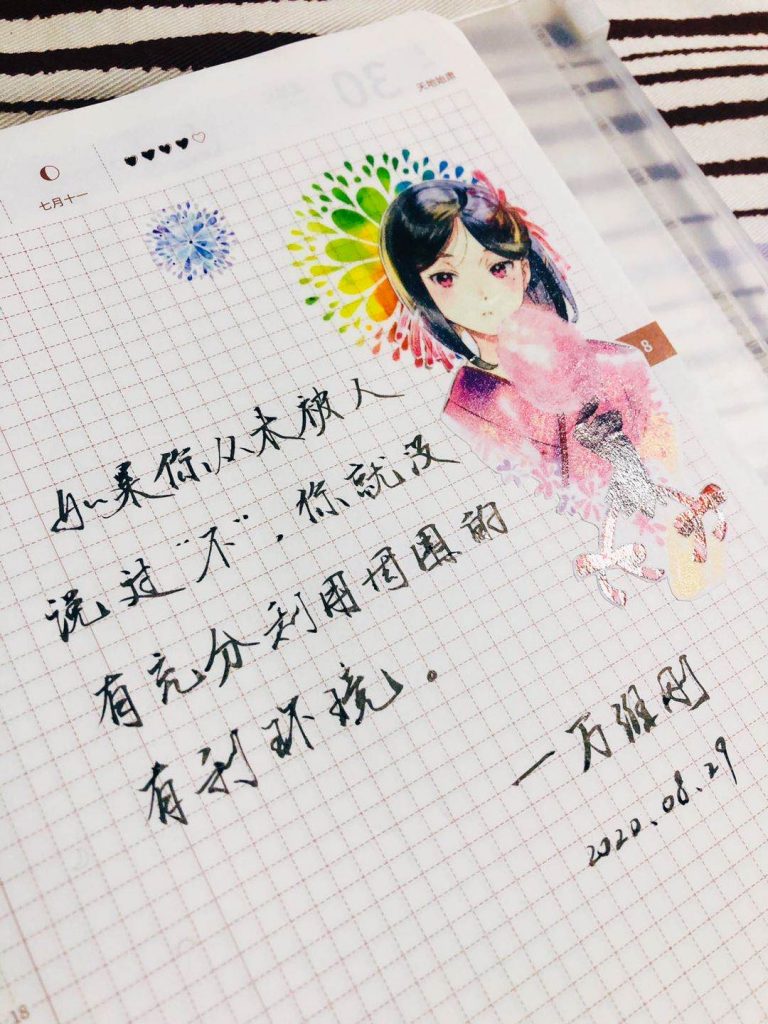 天地始肃
七月十一
8
如果你从未被人
说过“不”，你就没
有充分利用周围的
有利环境。
—万维刚
2020.08.29
18